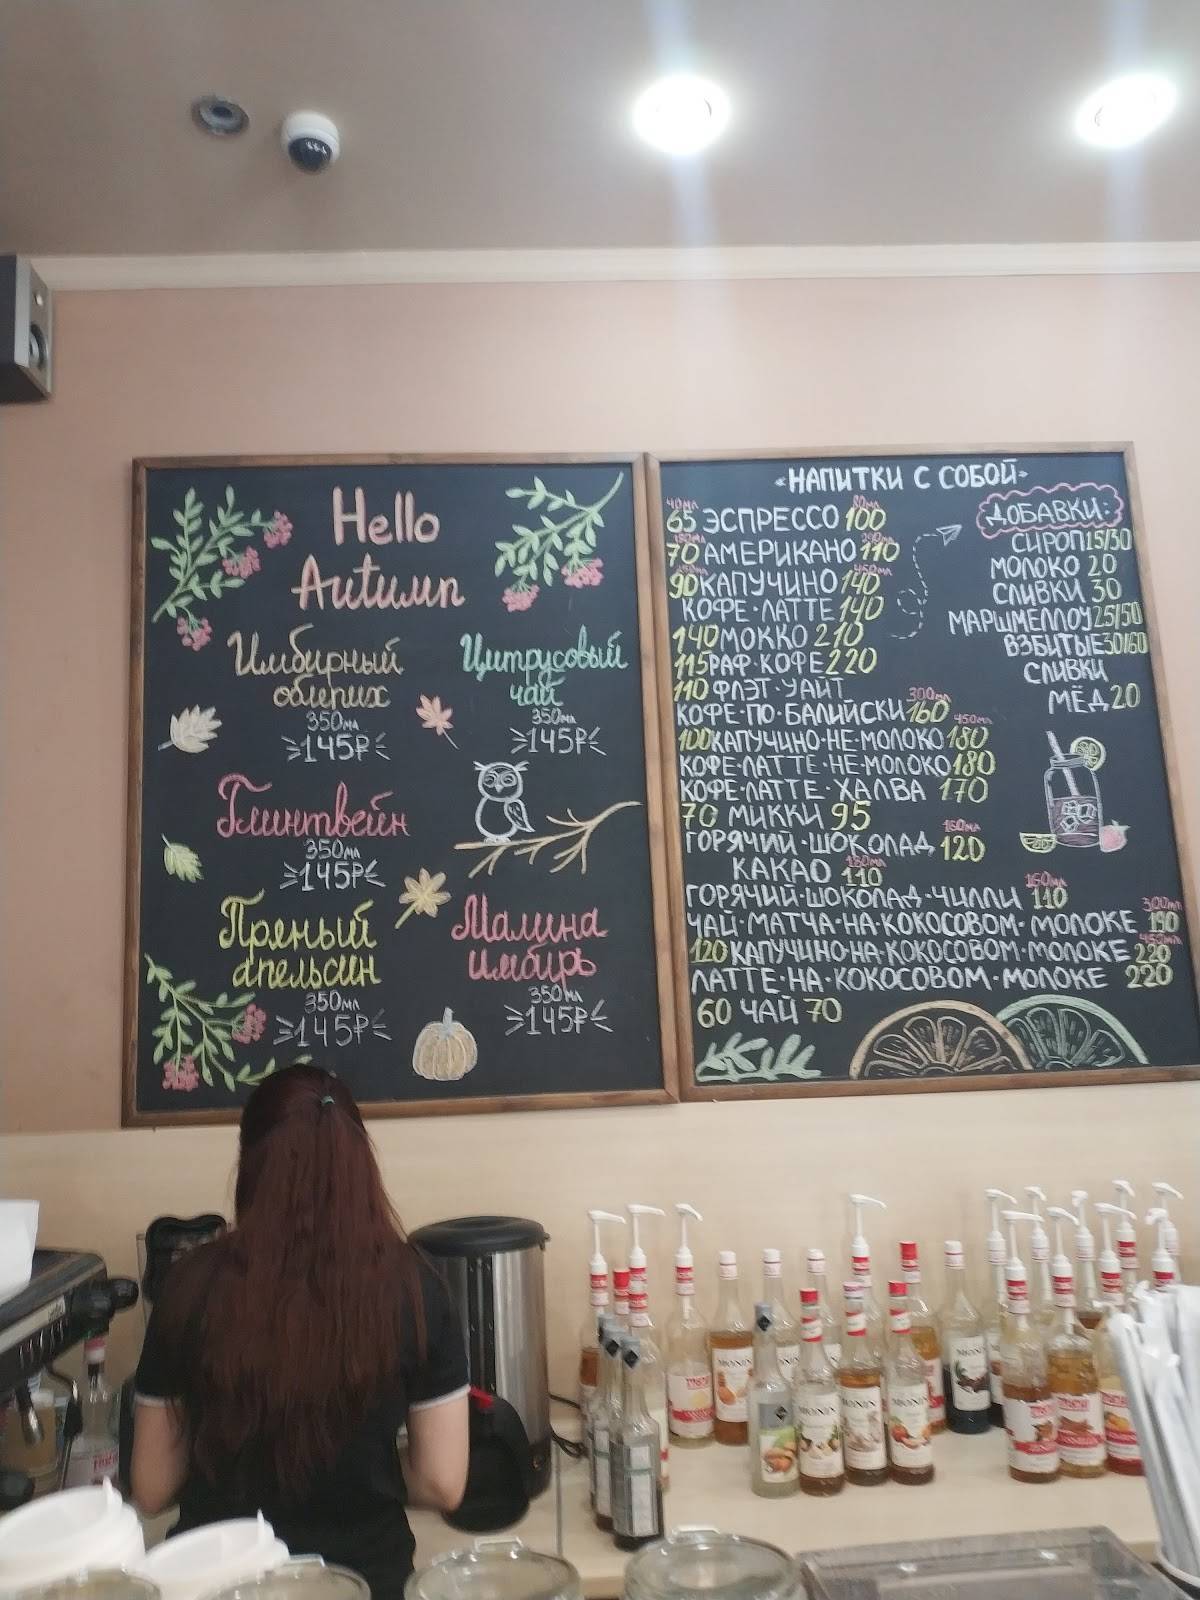 Hello
Autumn
Имбирный
облепих
350мл
145₽
Цитрусовый
чай
350мл
145₽
Глинтвейн
350мл
145₽
Пряный
апельсин
350мл
145₽
Малина
имбирь
350мл
145₽
«НАПИТКИ С СОБОЙ»
40мл 80мл
65 ЭСПРЕССО 100
70 АМЕРИКАНО 110
450мл
90 КАПУЧИНО 140
КОФЕ·ЛАТТЕ 140
140 МОККО 210
115 РАФ·КОФЕ 220
110 ФЛЭТ·УАЙТ
300мл
КОФЕ·ПО·БАЛИЙСКИ 160
450мл
100 КАПУЧИНО·НЕ·МОЛОКО 180
КОФЕ·ЛАТТЕ·НЕ·МОЛОКО 180
КОФЕ·ЛАТТЕ·ХАЛВА 170
70 МИККИ 95
160мл
ГОРЯЧИЙ·ШОКОЛАД 120
180мл
КАКАО 110
160мл
ГОРЯЧИЙ·ШОКОЛАД·ЧИЛЛИ 110
300мл
ЧАЙ·МАТЧА·НА·КОКОСОВОМ·МОЛОКЕ 190
450мл
120 КАПУЧИНО·НА·КОКОСОВОМ·МОЛОКЕ 220
ЛАТТЕ·НА·КОКОСОВОМ·МОЛОКЕ 220
60 ЧАЙ 70
ДОБАВКИ:
СИРОП 15/30
МОЛОКО 20
СЛИВКИ 30
МАРШМЕЛЛОУ 25/50
ВЗБИТЫЕ 30/60
СЛИВКИ
МЁД 20
MONIN
MONIN
MONIN
MONIN
MONIN